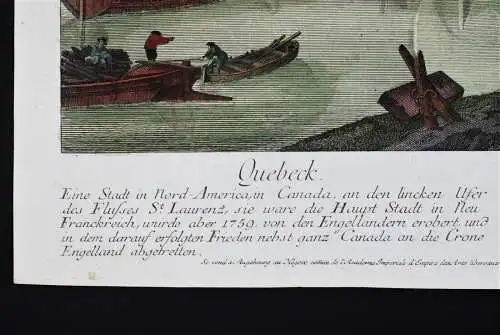 Quebeck.
Eine Stadt in Nord-America, in Canada, an den lincken Ufer
des Flußes St. Laurenz, sie ware die Haupt Stadt in Neu
Franckreich, wurde aber 1759. von den Engelländern erobert, und
in dem darauf erfolgten Frieden nebst ganz Canada an die Crone
Engelland abgetretten.
Se vend à Augsbourg au Negoce comun de l'Academie Imperiale d'Empire des Arts liberaux